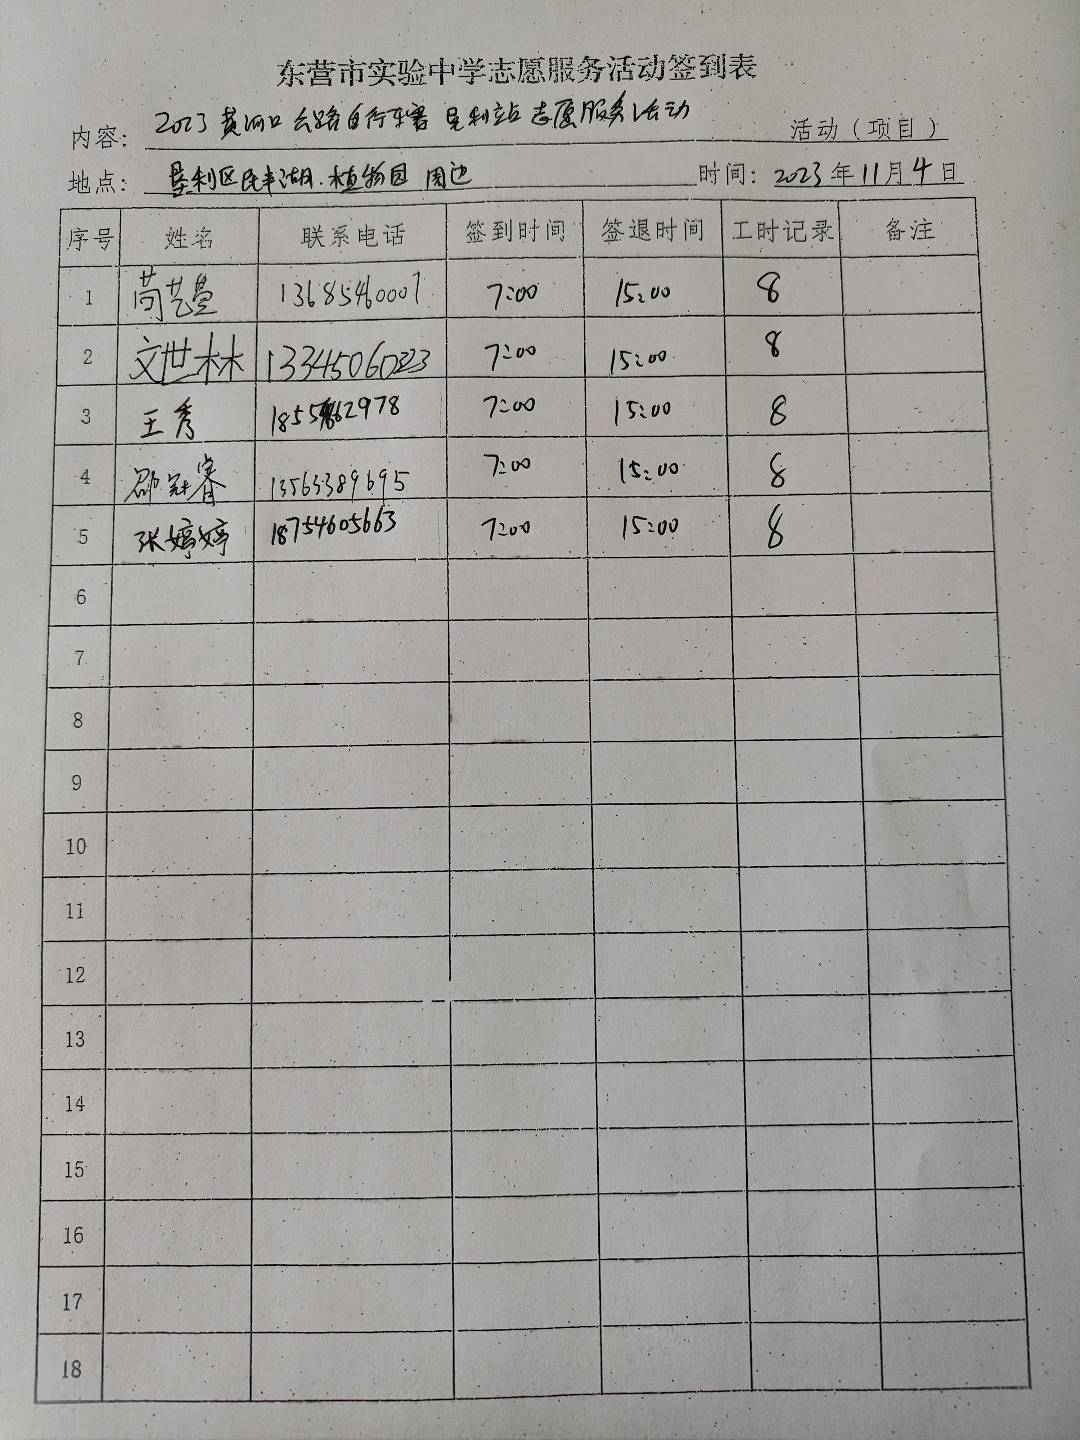 东营市实验中学志愿服务活动签到表
内容: 2023黄河口公路自行车赛垦利站志愿服务活动 活动（项目）
地点: 垦利区民丰湖.植物园周边 时间: 2023年11月4日
序号 姓名 联系电话 签到时间 签退时间 工时记录 备注
1 苘艺曼 13685460007 7:00 15:00 8
2 文世林 1334506023 7:00 15:00 8
3 王秀 7:00 15:00 8
4 邵冠睿 13563389695 7:00 15:00 8
5 张婷婷 18754605663 7:00 15:00 8
6
7
8
9
10
11
12
13
14
15
16
17
18